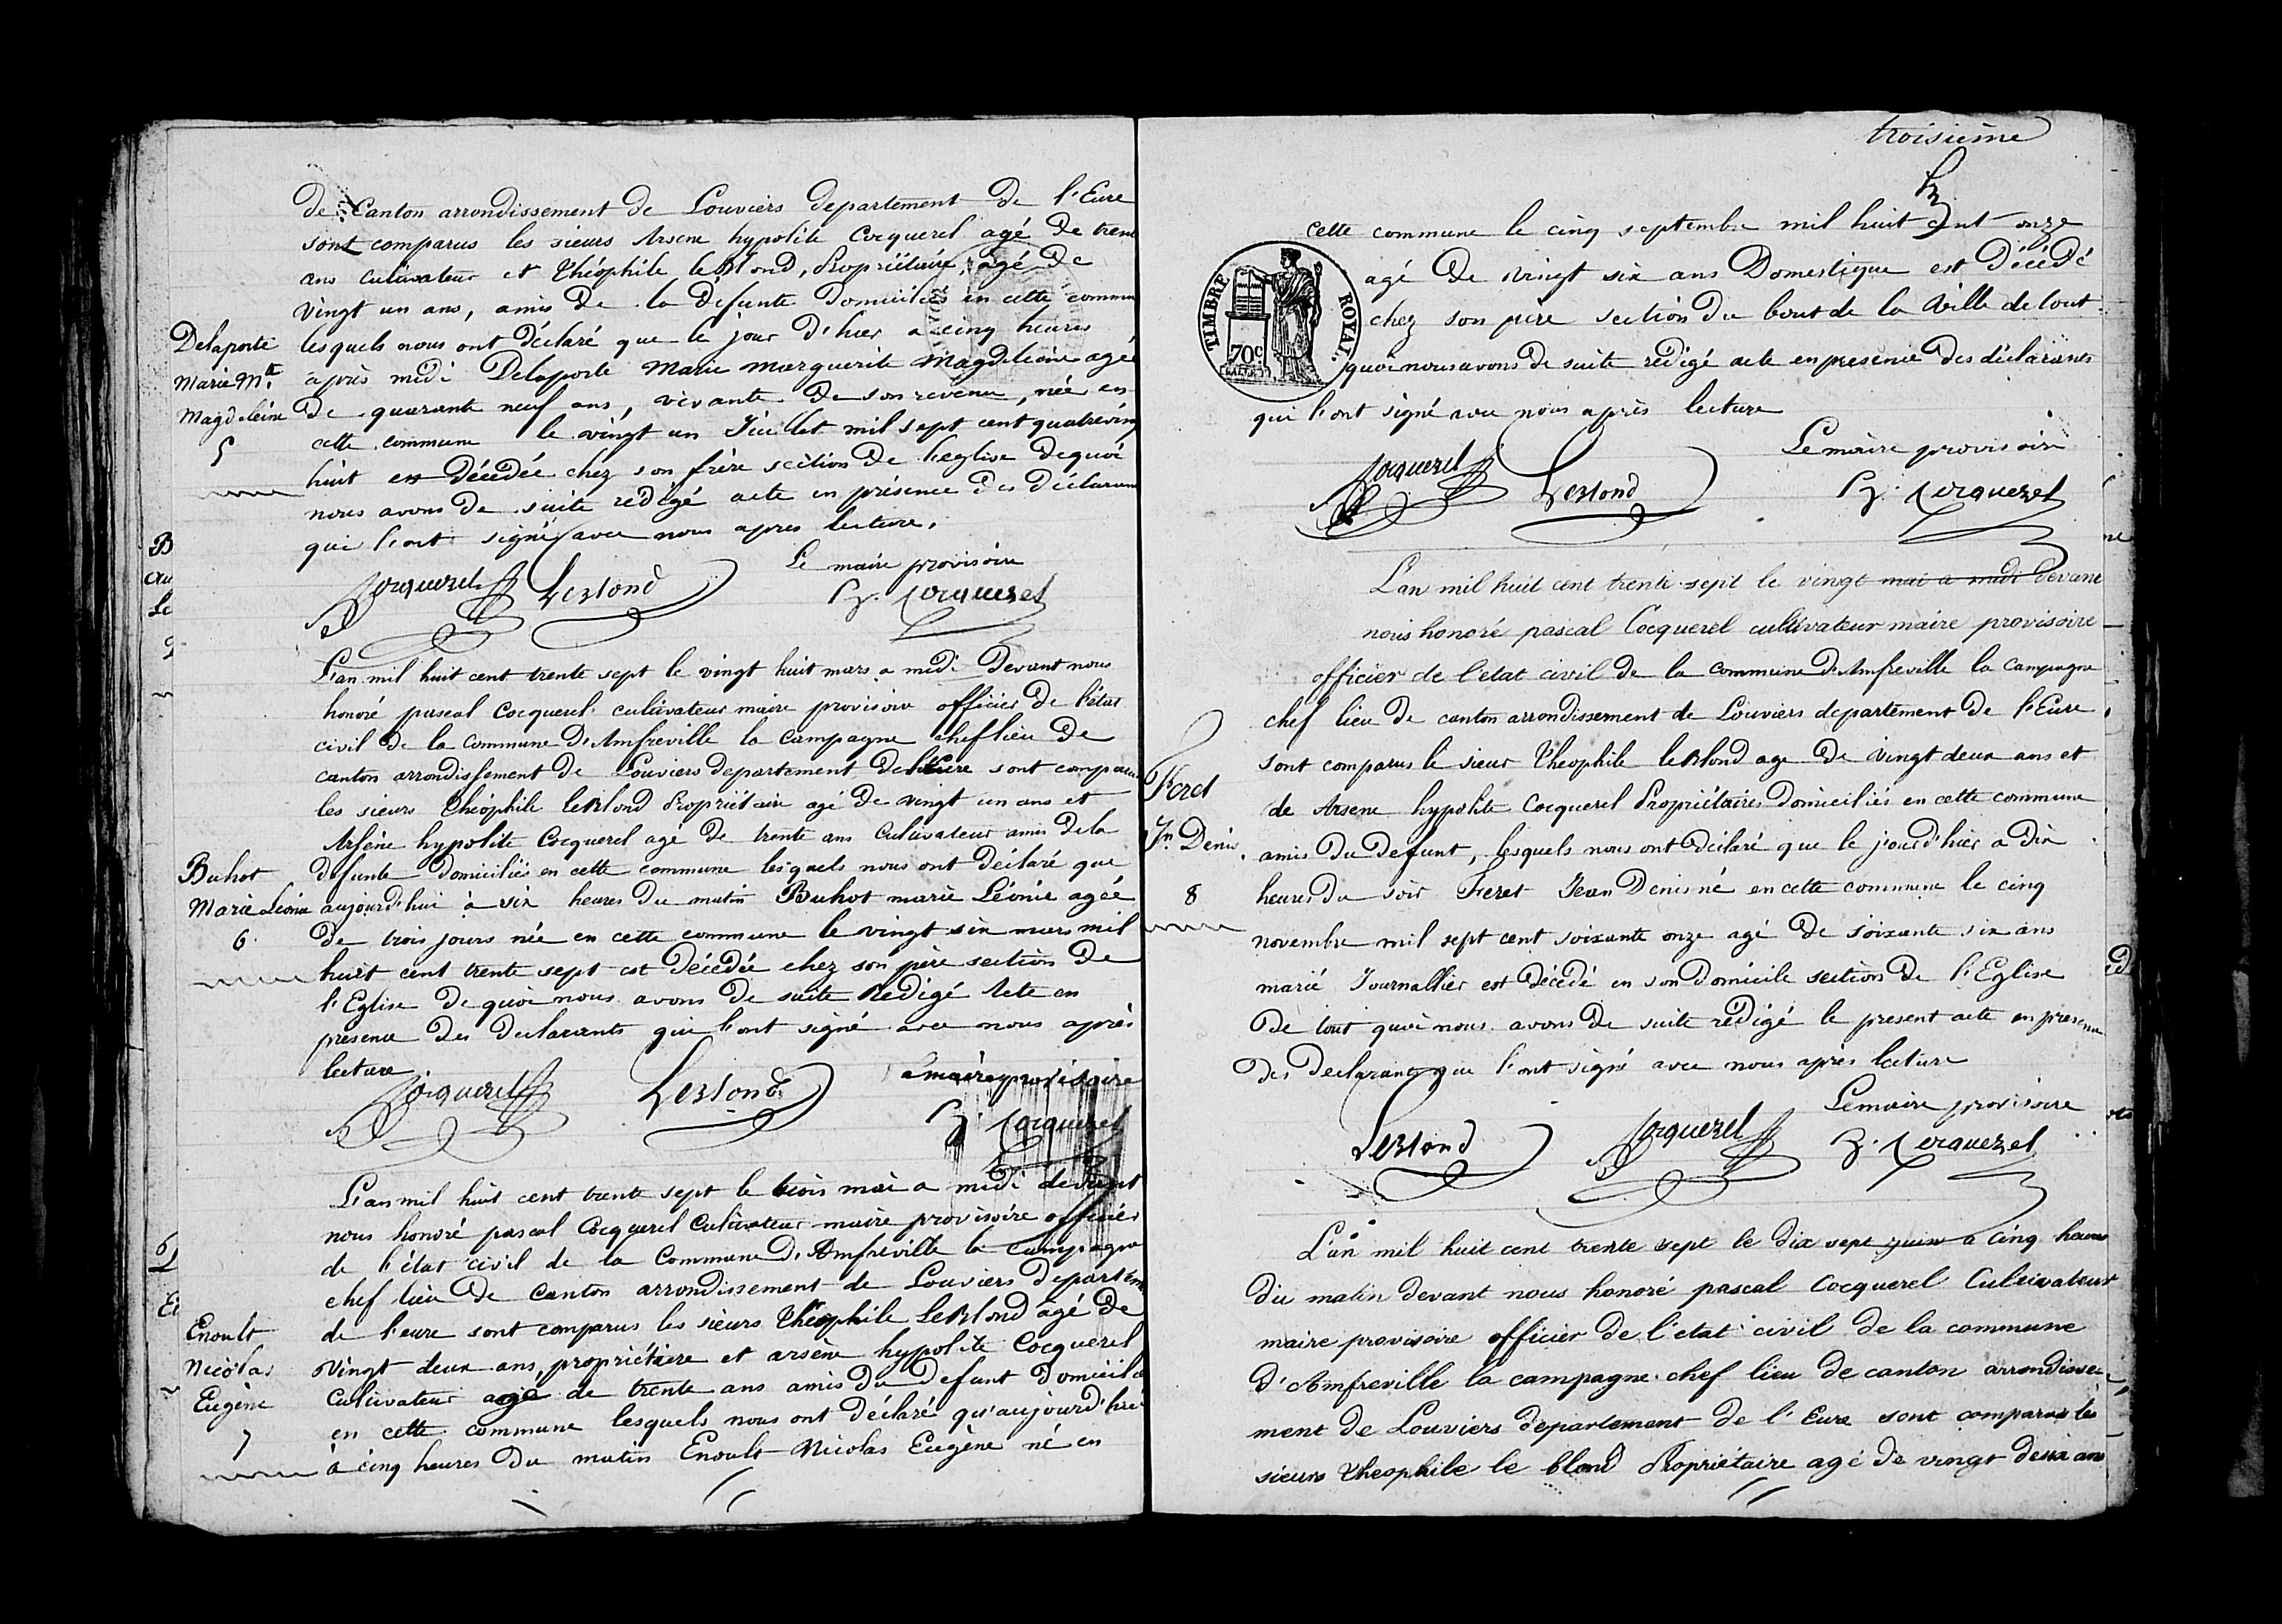 de Canton arrondissement de Louviers departement de l'Eure
sont comparus les sieurs Arsene hypolite Cocquerel agé de trente
ans cultivateur et théophile leblond, Propriétaire, agé de
vingt un ans, amis de la défunte domiciliés en cette commune
lesquels nous ont déclaré que le jour d'hier a cinq heures
après midi Delaporte Marie marguerite Magdeleine agée
de quarante neuf ans, vivante de son revenu, née en
cette commune le vingt un Juillet mil sept cent quatrevingt
huit est décédée chez son frère section de l'eglise de quoi
nous avons de suite rédigé acte en présence des déclarants
qui l'ont signé avec nous apres lecture.
Delaporte
Marie Mte
Magdeleine
5
Le maire provisoire
Cocquerel Leblond h. Cocquerel
L'an mil huit cent trente sept le vingt huit mars a midi devant nous
honoré pascal Cocquerel cultivateur maire provisoire officier de l'état
civil de la commune d'Amfreville la campagne chef lieu de
canton arrondissement de Louviers departement de l'Eure sont comparus
les sieurs théophile leblond Propriétaire agé de vingt un ans et
Arsène hypolite Cocquerel agé de trente ans cultivateur amis de la
défunte domiciliés en cette commune lesquels nous ont déclaré que
aujourd'hui à six heures du matin Buhot marie Léonie agée
de trois jours née en cette commune le vingt six mars mil
huit cent trente sept est décédée chez son père section de
l'Eglise de quoi nous avons de suite Redigé Acte en
présence des declarants qui l'ont signé avec nous après
lecture
Buhot
Marie Léonie
6
Le maire provisoire
Cocquerel Leblond h. Cocquerel
L'an mil huit cent trente sept le trois mai a midi devant
nous honoré pascal Cocquerel Cultivateur maire provisoire officier
de l'état civil de la Commune d'Amfreville la Campagne
chef lieu de Canton arrondissement de Louviers Departement
de l'eure sont comparus les sieurs théophile Leblond agé de
vingt deux ans, propriétaire et arsène hypolite Cocquerel
cultivateur agé de trente ans amis du defunt domiciliés
en cette commune lesquels nous ont déclaré qu'aujourd'hui
à cinq heures du matin Enoult Nicolas Eugène né en
Enoult
Nicolas
Eugène
7
troisième
cette commune le cinq septembre mil huit cent onze
agé de vingt six ans Domestique est décédé
chez son père section du bout de la Ville de tout
quoi nous avons de suite rédigé acte en presence des déclarants
qui l'ont signé avec nous après lecture
TIMBRE ROYAL
70c
Le maire provisoire
Cocquerel Leblond h. Cocquerel
L'an mil huit cent trente sept le vingt mai a midi devant
nous honoré pascal Cocquerel cultivateur maire provisoire
officier de l'etat civil de la commune d'Amfreville la Campagne
chef lieu de canton arrondissement de Louviers departement de l'Eure
sont comparus le sieur théophile leblond age de vingt deux ans et
de Arsene hypolite Cocquerel Propriétaires domiciliés en cette commune
amis du defunt, lesquels nous ont déclaré que le jour d'hier a dix
heures du soir Feret Jean Denis né en cette commune le cinq
novembre mil sept cent soixante onze agé de soixante six ans
marié Journallier est décédé en son domicile section de l'Eglise
de tout quoi nous avons de suite rédigé le present acte en presence
des declarants qui l'ont signé avec nous après lecture
Feret
Jn Denis
8
Le maire provisoire
Leblond Cocquerel h. Cocquerel
L'an mil huit cent trente sept le dix sept juin a cinq heures
du matin devant nous honoré pascal Cocquerel Cultivateur
maire provisoire officier de l'etat civil de la commune
d'Amfreville la campagne chef lieu de canton arrondisse-
ment de Louviers departement de l'Eure sont comparus les
sieurs théophile le blond Propriétaire agé de vingt deux ans